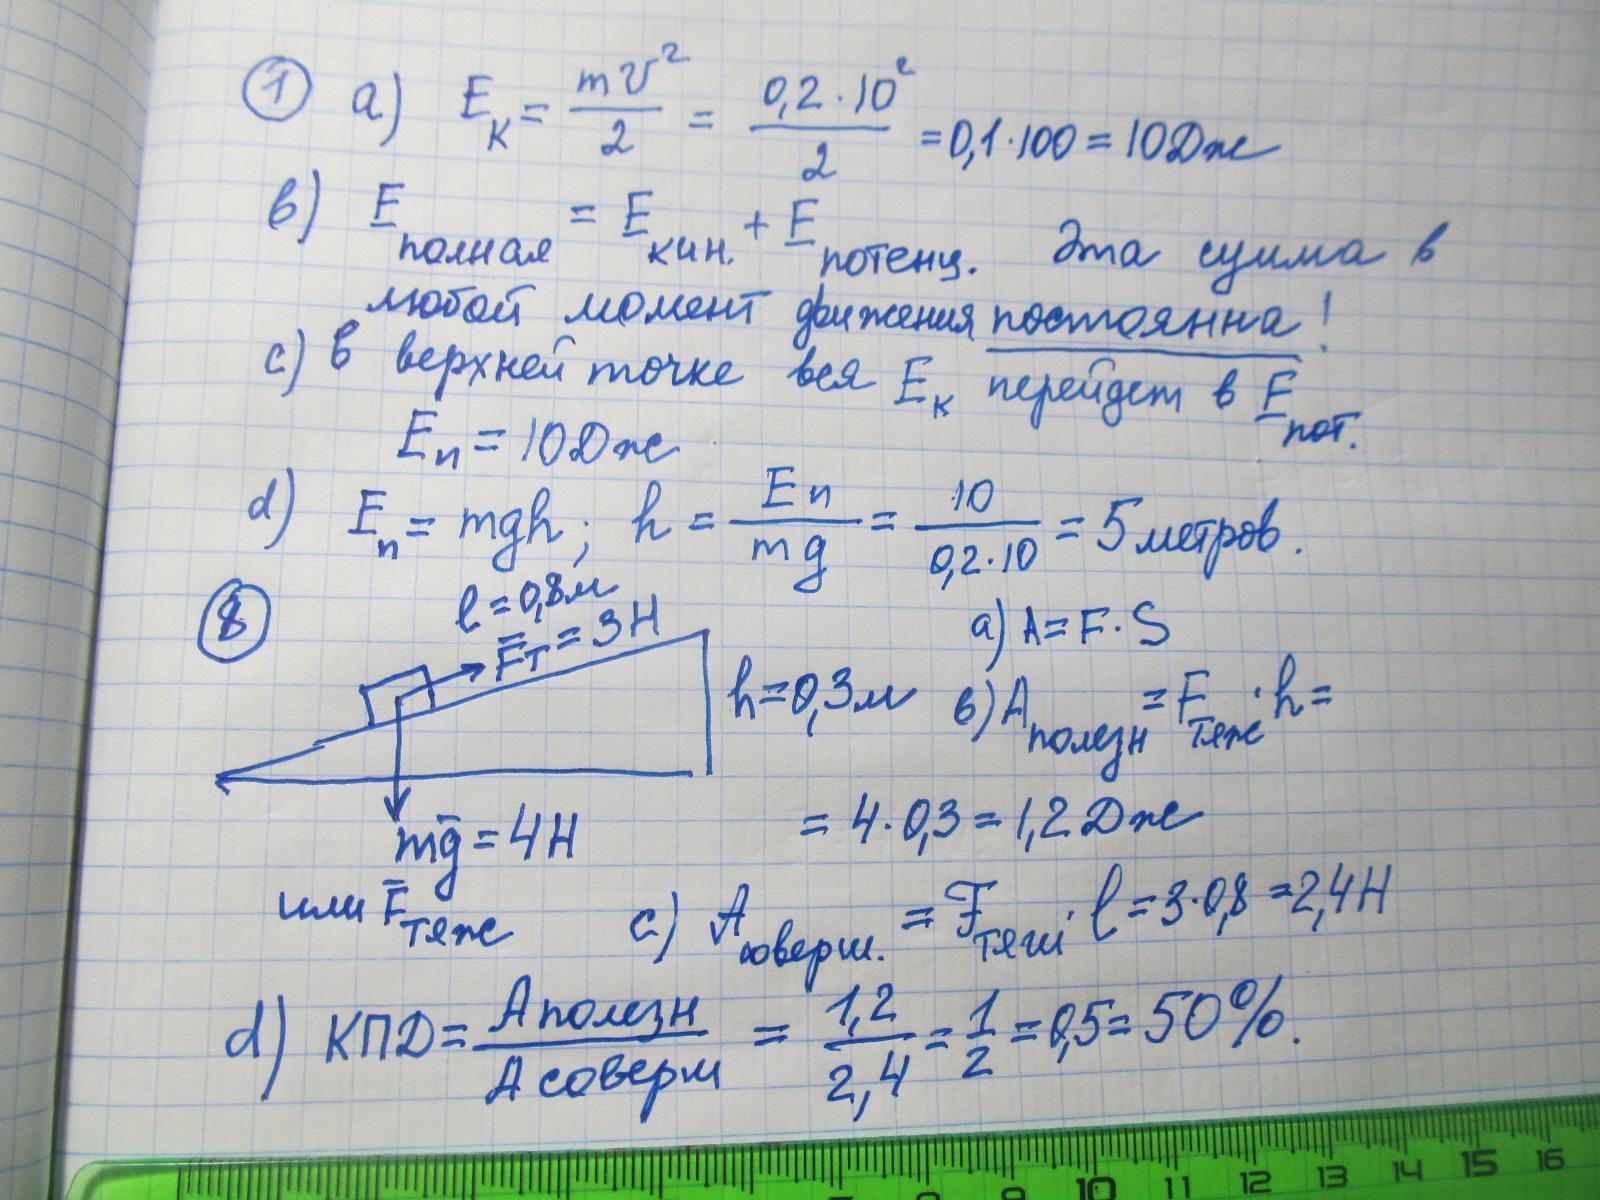 1 a) Eк = mv²/2 = 0,2·10²/2 = 0,1·100 = 10Дж
в) E полная = E кин. + E потенц. Эта сумма в
любой момент движения постоянна!
c) в верхней точке вся Eк перейдет в E пот.
Eп = 10Дж
d) Eп = mgh; h = Eп/mg = 10/0,2·10 = 5 метров.
8 l = 0,8м
F̄т = 3Н
a) A = F·S
h = 0,3м в) A полезн = F тяж · h =
= 4·0,3 = 1,2 Дж
mḡ = 4Н
или F̄ тяж
c) A соверш. = F тяги · l = 3·0,8 = 2,4Н
d) КПД = A полезн/A соверш = 1,2/2,4 = 1/2 = 0,5 = 50%.
10 11 12 13 14 15 16